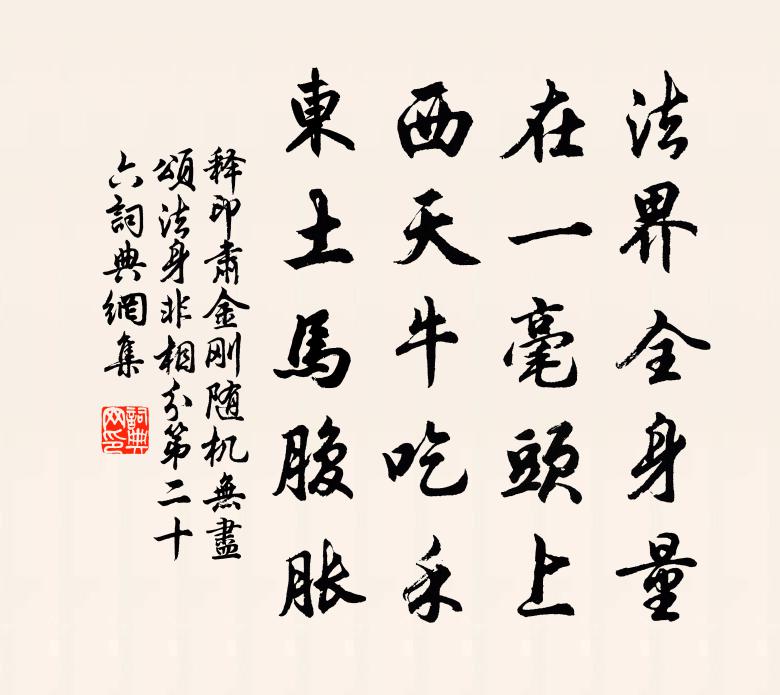 法界全身量
在一毫頭上
西天牛吃禾
東土馬腹脹
释印肅金刚随机無盡
頌法身非相分第二十
六詞典網集
詞典
网印